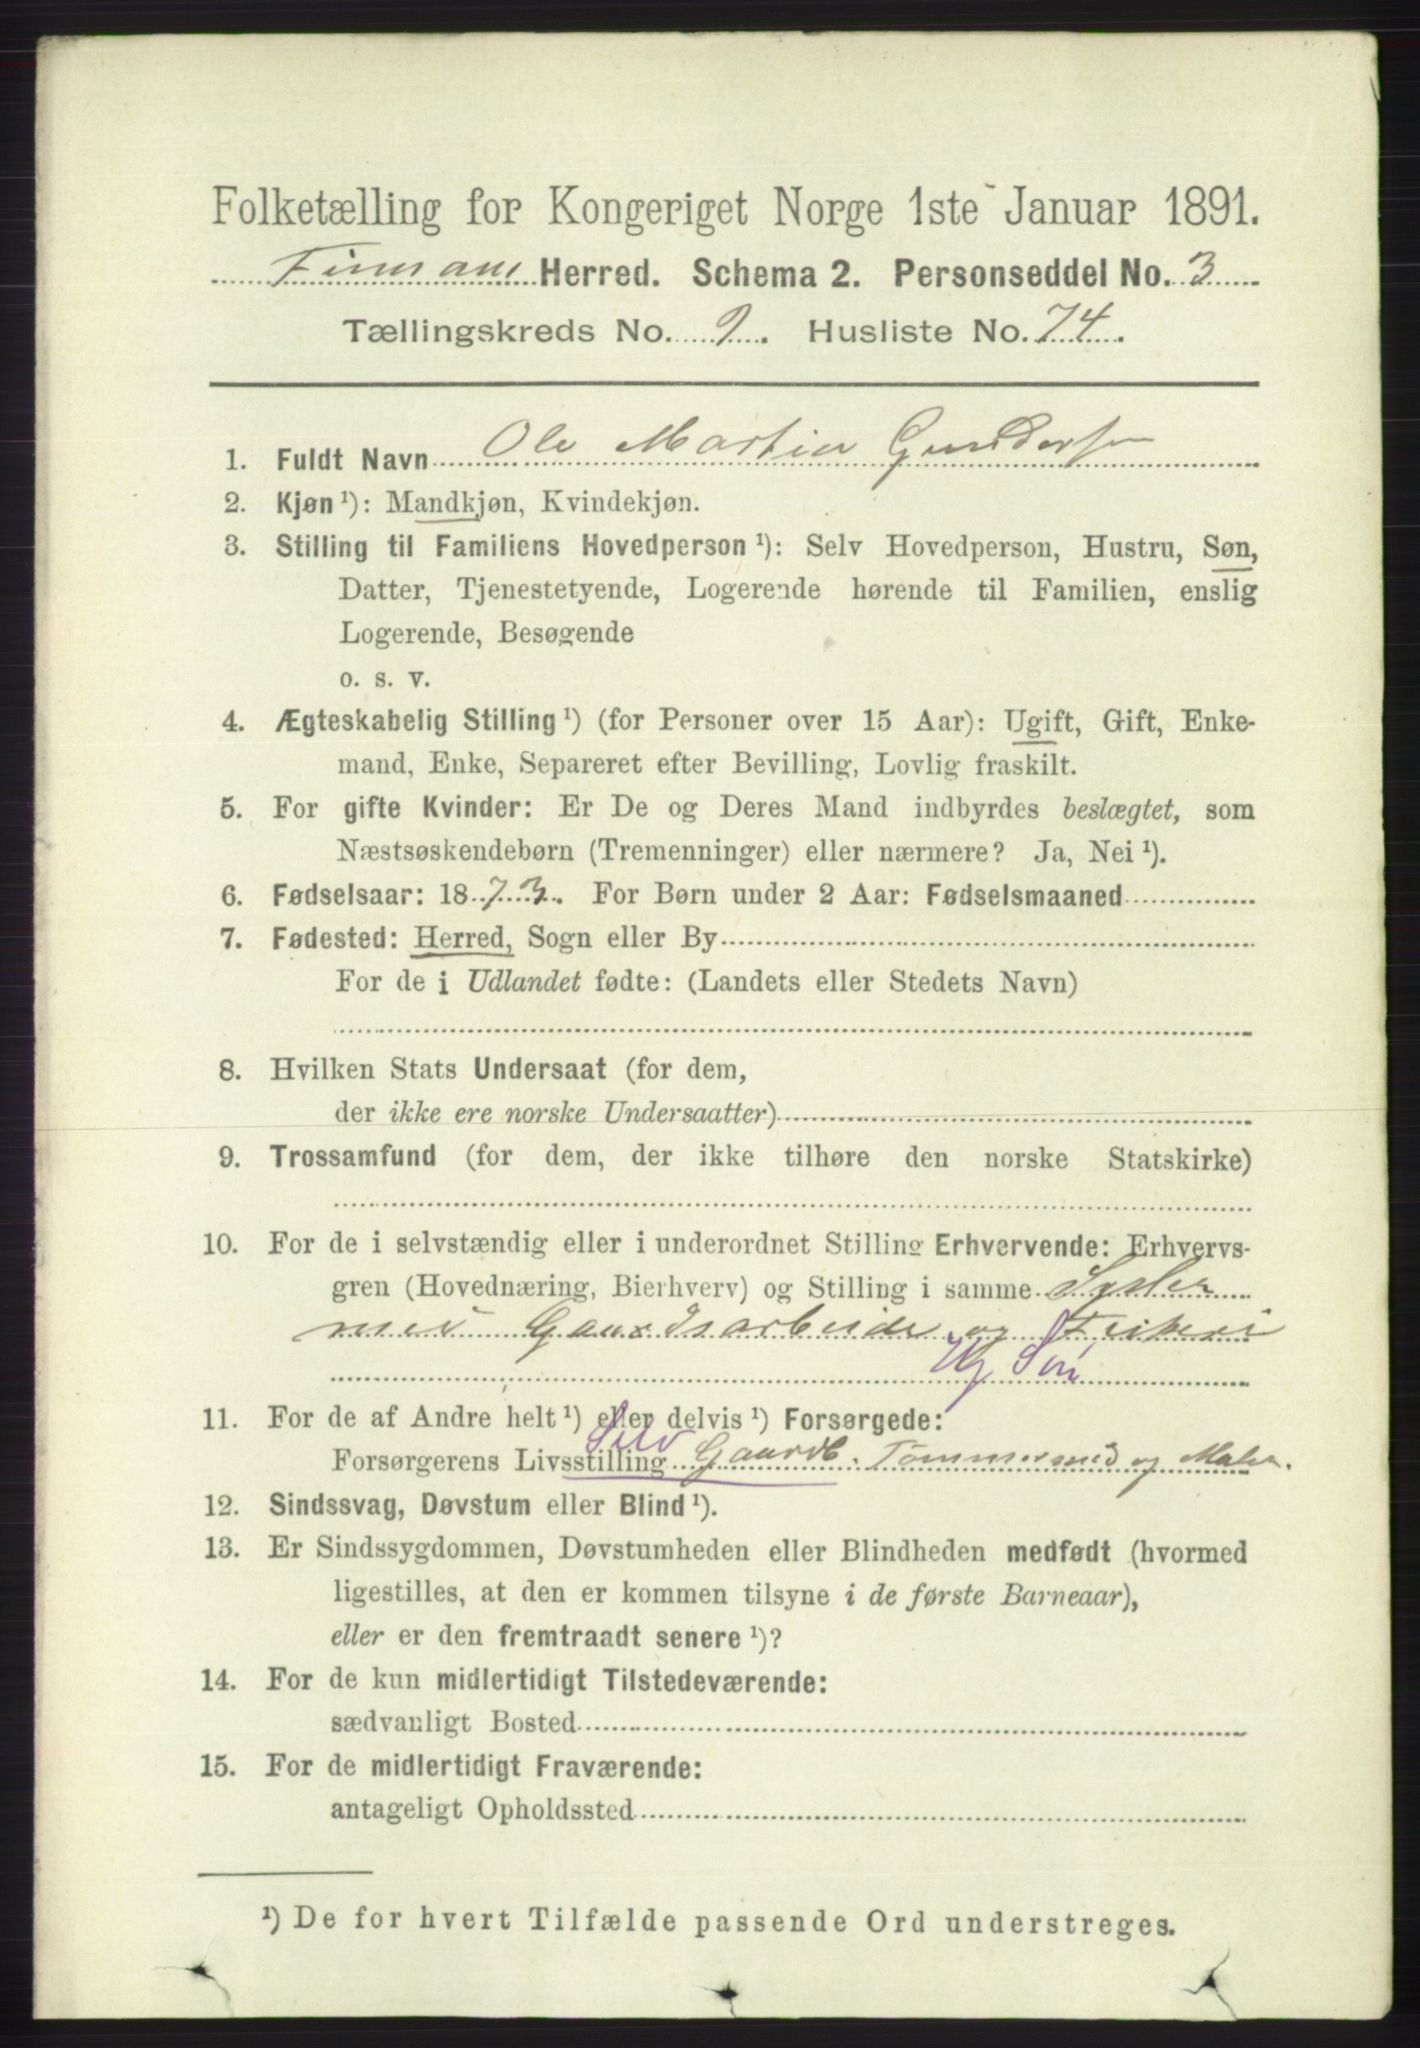 Folketælling for Kongeriget Norge 1ste Januar 1891.
Finnaas Herred. Schema 2. Personseddel No. 3
Tællingskreds No. 9. Husliste No. 74.
1. Fuldt Navn Ole Martin Gundersen
2. Kjøn ¹): Mandkjøn, Kvindekjøn.
3. Stilling til Familiens Hovedperson ¹): Selv Hovedperson, Hustru, Søn,
Datter, Tjenestetyende, Logerende hørende til Familien, enslig
Logerende, Besøgende
o. s. v.
4. Ægteskabelig Stilling ¹) (for Personer over 15 Aar): Ugift, Gift, Enke-
mand, Enke, Separeret efter Bevilling, Lovlig fraskilt.
5. For gifte Kvinder: Er De og Deres Mand indbyrdes beslægtet, som
Næstsøskendebørn (Tremenninger) eller nærmere? Ja, Nei ¹).
6. Fødselsaar: 1873. For Børn under 2 Aar: Fødselsmaaned
7. Fødested: Herred, Sogn eller By
For de i Udlandet fødte: (Landets eller Stedets Navn)
8. Hvilken Stats Undersaat (for dem,
der ikke ere norske Undersaatter)
9. Trossamfund (for dem, der ikke tilhøre den norske Statskirke)
10. For de i selvstændig eller i underordnet Stilling Erhvervende: Erhvervs-
gren (Hovednæring, Bierhverv) og Stilling i samme Sysler
med Gaardsarbeide og Fiskeri
Hg Søn
11. For de af Andre helt ¹) eller delvis ¹) Forsørgede:
Selv
Forsørgerens Livsstilling Gaardb. Tømmermed og Maler.
12. Sindssvag, Døvstum eller Blind ¹).
13. Er Sindssygdommen, Døvstumheden eller Blindheden medfødt (hvormed
ligestilles, at den er kommen tilsyne i de første Barneaar),
eller er den fremtraadt senere ¹)?
14. For de kun midlertidigt Tilstedeværende:
sædvanligt Bosted
15. For de midlertidigt Fraværende:
antageligt Opholdssted
¹) De for hvert Tilfælde passende Ord understreges.